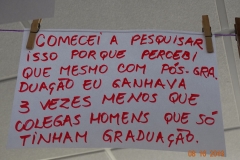 COMECEI A PESQUISAR
ISSO PORQUE PERCEBI
QUE MESMO COM PÓS-GRA
DUAÇÃO EU GANHAVA
3 VEZES MENOS QUE
COLEGAS HOMENS QUE SÓ
TINHAM GRADUAÇÃO.